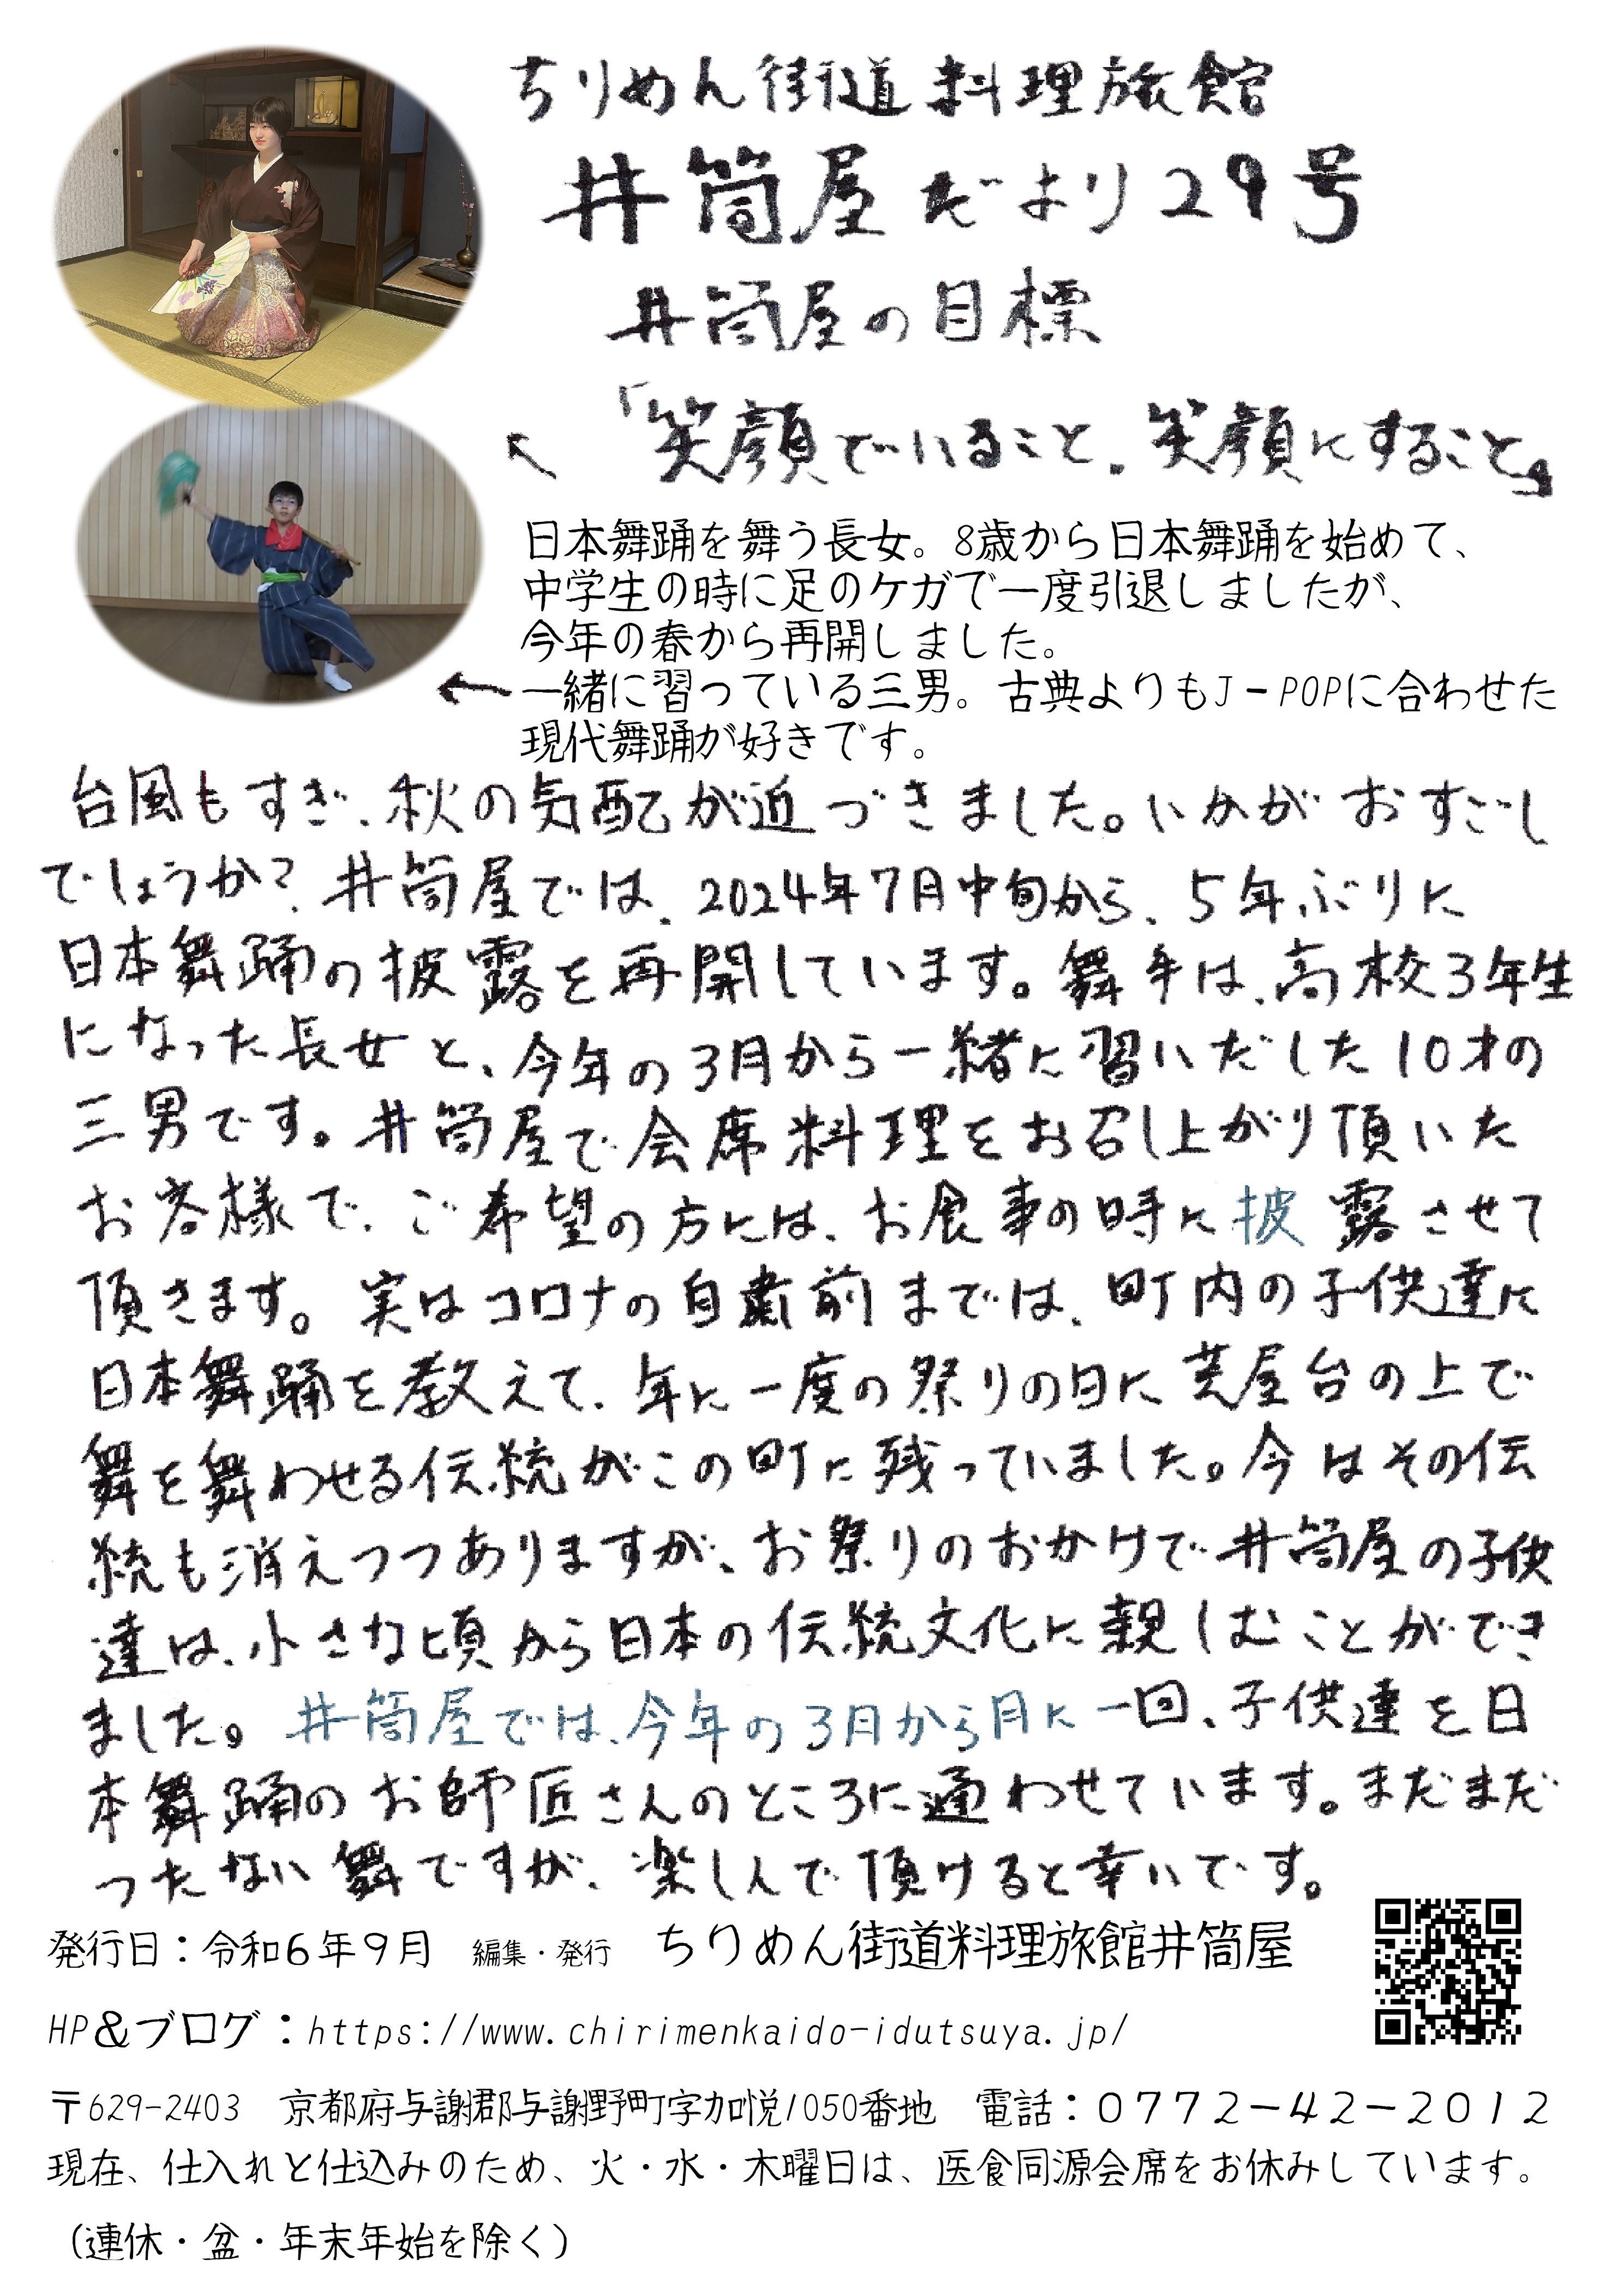 ちりめん街道料理旅館
井筒屋だより29号
井筒屋の目標
「笑顔でいること。笑顔にすること」
日本舞踊を舞う長女。8歳から日本舞踊を始めて、
中学生の時に足のケガで一度引退しましたが、
今年の春から再開しました。
一緒に習っている三男。古典よりもJ-POPに合わせた
現代舞踊が好きです。
台風もすぎ、秋の気配が近づきました。いかがおすごし
でしょうか?井筒屋では、2024年7月中旬から、5年ぶりに
日本舞踊の披露を再開しています。舞手は、高校3年生
になった長女と、今年の3月から一緒に習いだした10才の
三男です。井筒屋で会席料理をお召し上がり頂いた
お客様で、ご希望の方には、お食事の時に披露させて
頂きます。実はコロナの自粛前までは、町内の子供達に
日本舞踊を教えて、年に一度の祭りの日に芸屋台の上で
舞を舞わせる伝統がこの町に残っていました。今はその伝
統も消えつつありますが、お祭りのおかげで井筒屋の子供
達は、小さな頃から日本の伝統文化に親しむことができ
ました。井筒屋では、今年の3月から月に一回、子供達を日
本舞踊のお師匠さんのところに通わせています。まだまだ
つたない舞ですが、楽しんで頂けると幸いです。
発行日：令和6年9月 編集・発行 ちりめん街道料理旅館井筒屋
HP＆ブログ：https://www.chirimenkaido-idutsuya.jp/
〒629-2403 京都府与謝郡与謝野町字加悦1050番地 電話：０７７２－４２－２０１２
現在、仕入れと仕込みのため、火・水・木曜日は、医食同源会席をお休みしています。
（連休・盆・年末年始を除く）